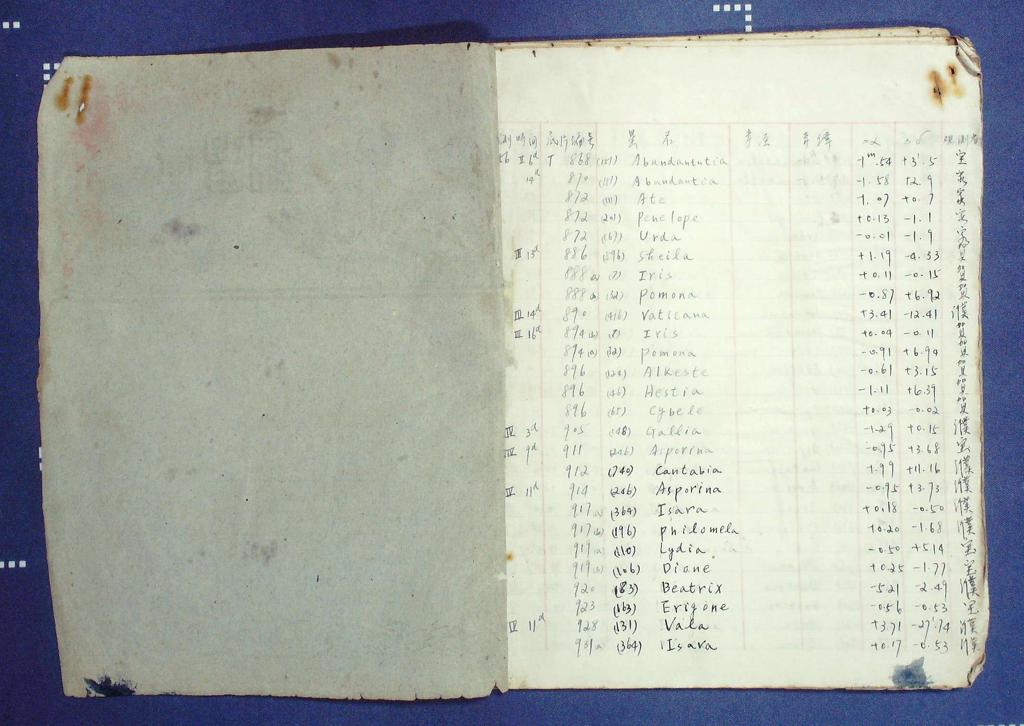 测时间 底片编号 星名 赤经 赤纬 Δα Δδ 观测者
56 II 6d T 868 (151) Abundantutia -1m.54 +3'.5 宝
14d 870 (151) Abundantia -1.58 +2.9
872 (111) Ate -1.07 +0.7
872 (201) Penelope +0.13 -1.1
872 (167) Urda -0.01 -1.9
III 13d 886 (996) Sheila +1.19 -4.33
888(a) (7) Iris +0.11 -0.15
888(b) (32) Pomona -0.87 +6.92
III 14d 890 (416) Vaticana +3.41 -12.41 濮
III 16d 894(b) (7) Iris +0.04 -0.11
894(a) (32) Pomona -0.91 +6.94
896 (124) Alkeste -0.61 +3.15
896 (46) Hestia -1.11 +6.39
896 (65) Cybele +0.03 -0.02
IV 3d 905 (148) Gallia -1.29 +0.15 濮
IV 9d 911 (246) Asporina -0.95 +3.68 宝
912 (740) Cantabia -1.99 +11.16 濮
IV 11d 914 (246) Asporina -0.95 +3.73 濮
917(a) (364) Isara +0.18 -0.50 濮
917(b) (196) Philomela +0.20 -1.68 濮
919(a) (110) Lydia -0.50 +5.14 宝
919(b) (106) Diane +0.25 -1.77 宝
920 (83) Beatrix -5.21 -2.49 濮
923 (163) Erigone -0.56 -0.53 宝
IV 11d 928 (131) Vala +3.71 -27'.74 濮
931(a) (364) Isara +0.17 -0.53 濮